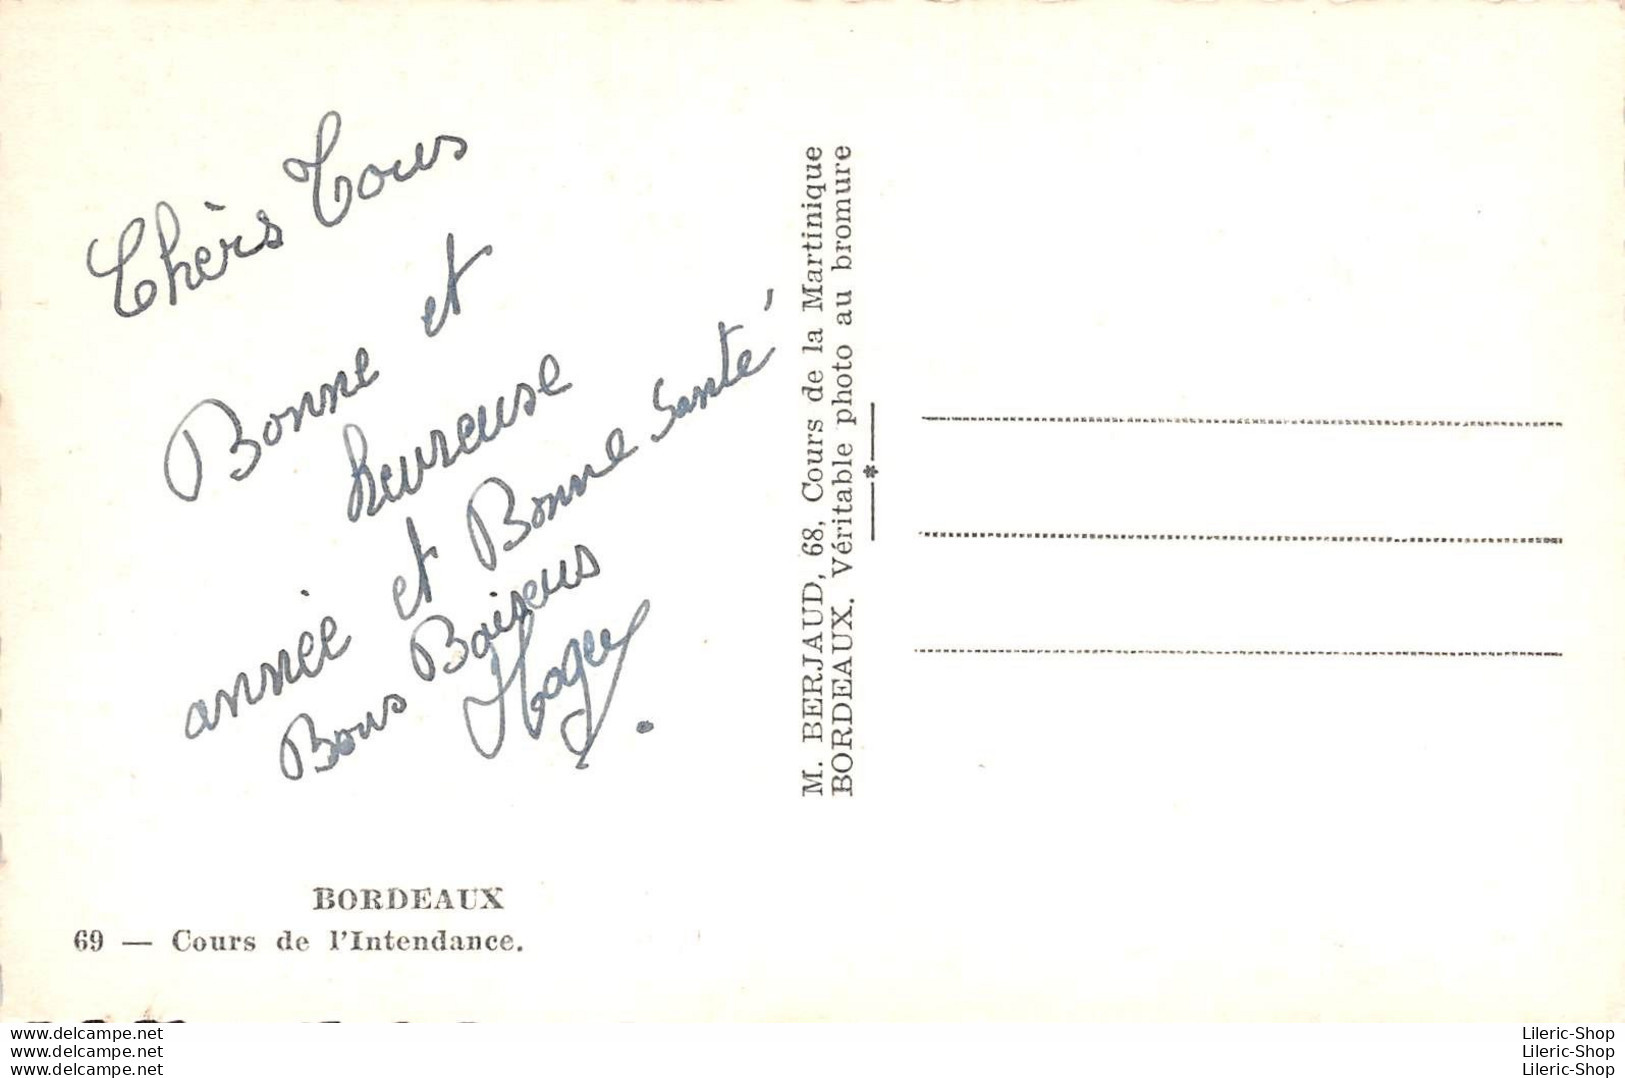 Chèrs Tous
Bonne et
heureuse
année et Bonne Santé
Bons Baisers
M. BERJAUD, 68, Cours de la Martinique
BORDEAUX. Véritable photo au bromure
BORDEAUX
69 — Cours de l'Intendance.
www.delcampe.net
www.delcampe.net
www.delcampe.net
Lileric-Shop
Lileric-Shop
Lileric-Shop